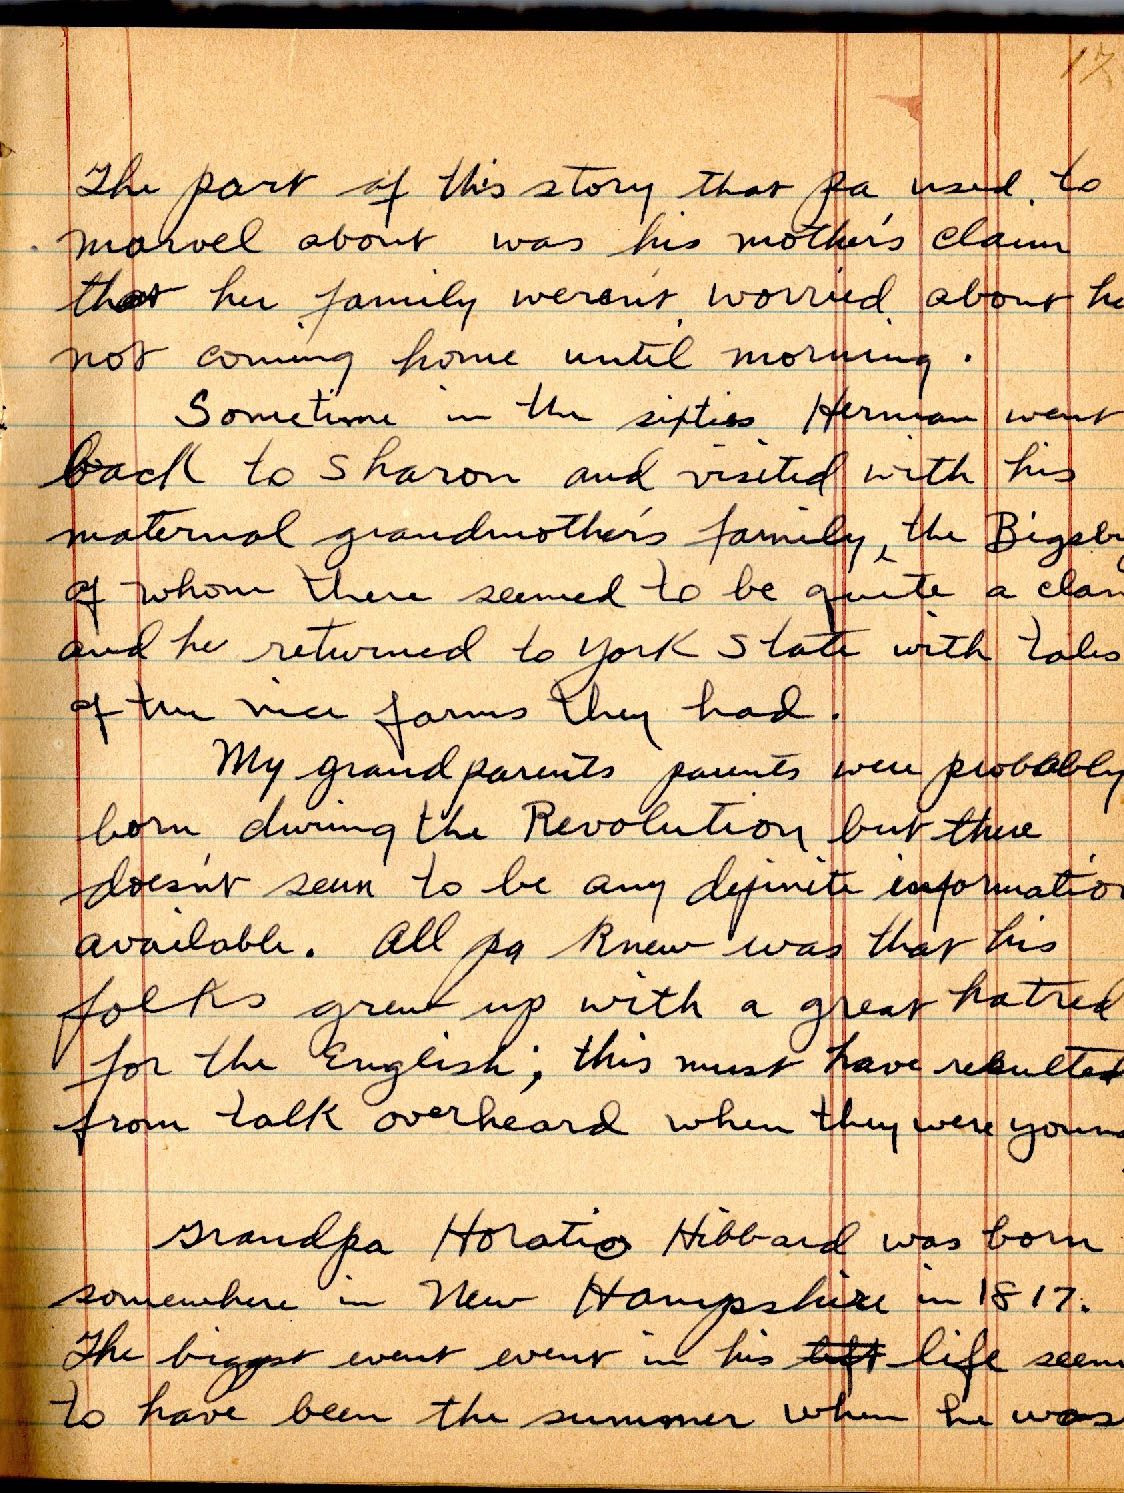 17
The part of this story that pa used to
marvel about was his mother's claim
that her family weren't worried about he
not coming home until morning.
Sometime in the sixties Herman went
back to Sharon and visited with his
maternal grandmother's family, the Bigsby
of whom there seemed to be quite a clan
and he returned to York State with tales
of the nice farms they had.
My grandparents parents were probably
born during the Revolution but there
doesn't seem to be any definite information
available. All pa knew was that his
folks grew up with a great hatred
for the English; this must have resulted
from talk overheard when they were young
Grandpa Horatio Hibbard was born
somewhere in New Hampshire in 1817.
The biggest event event in his left life seem
to have been the summer when he was